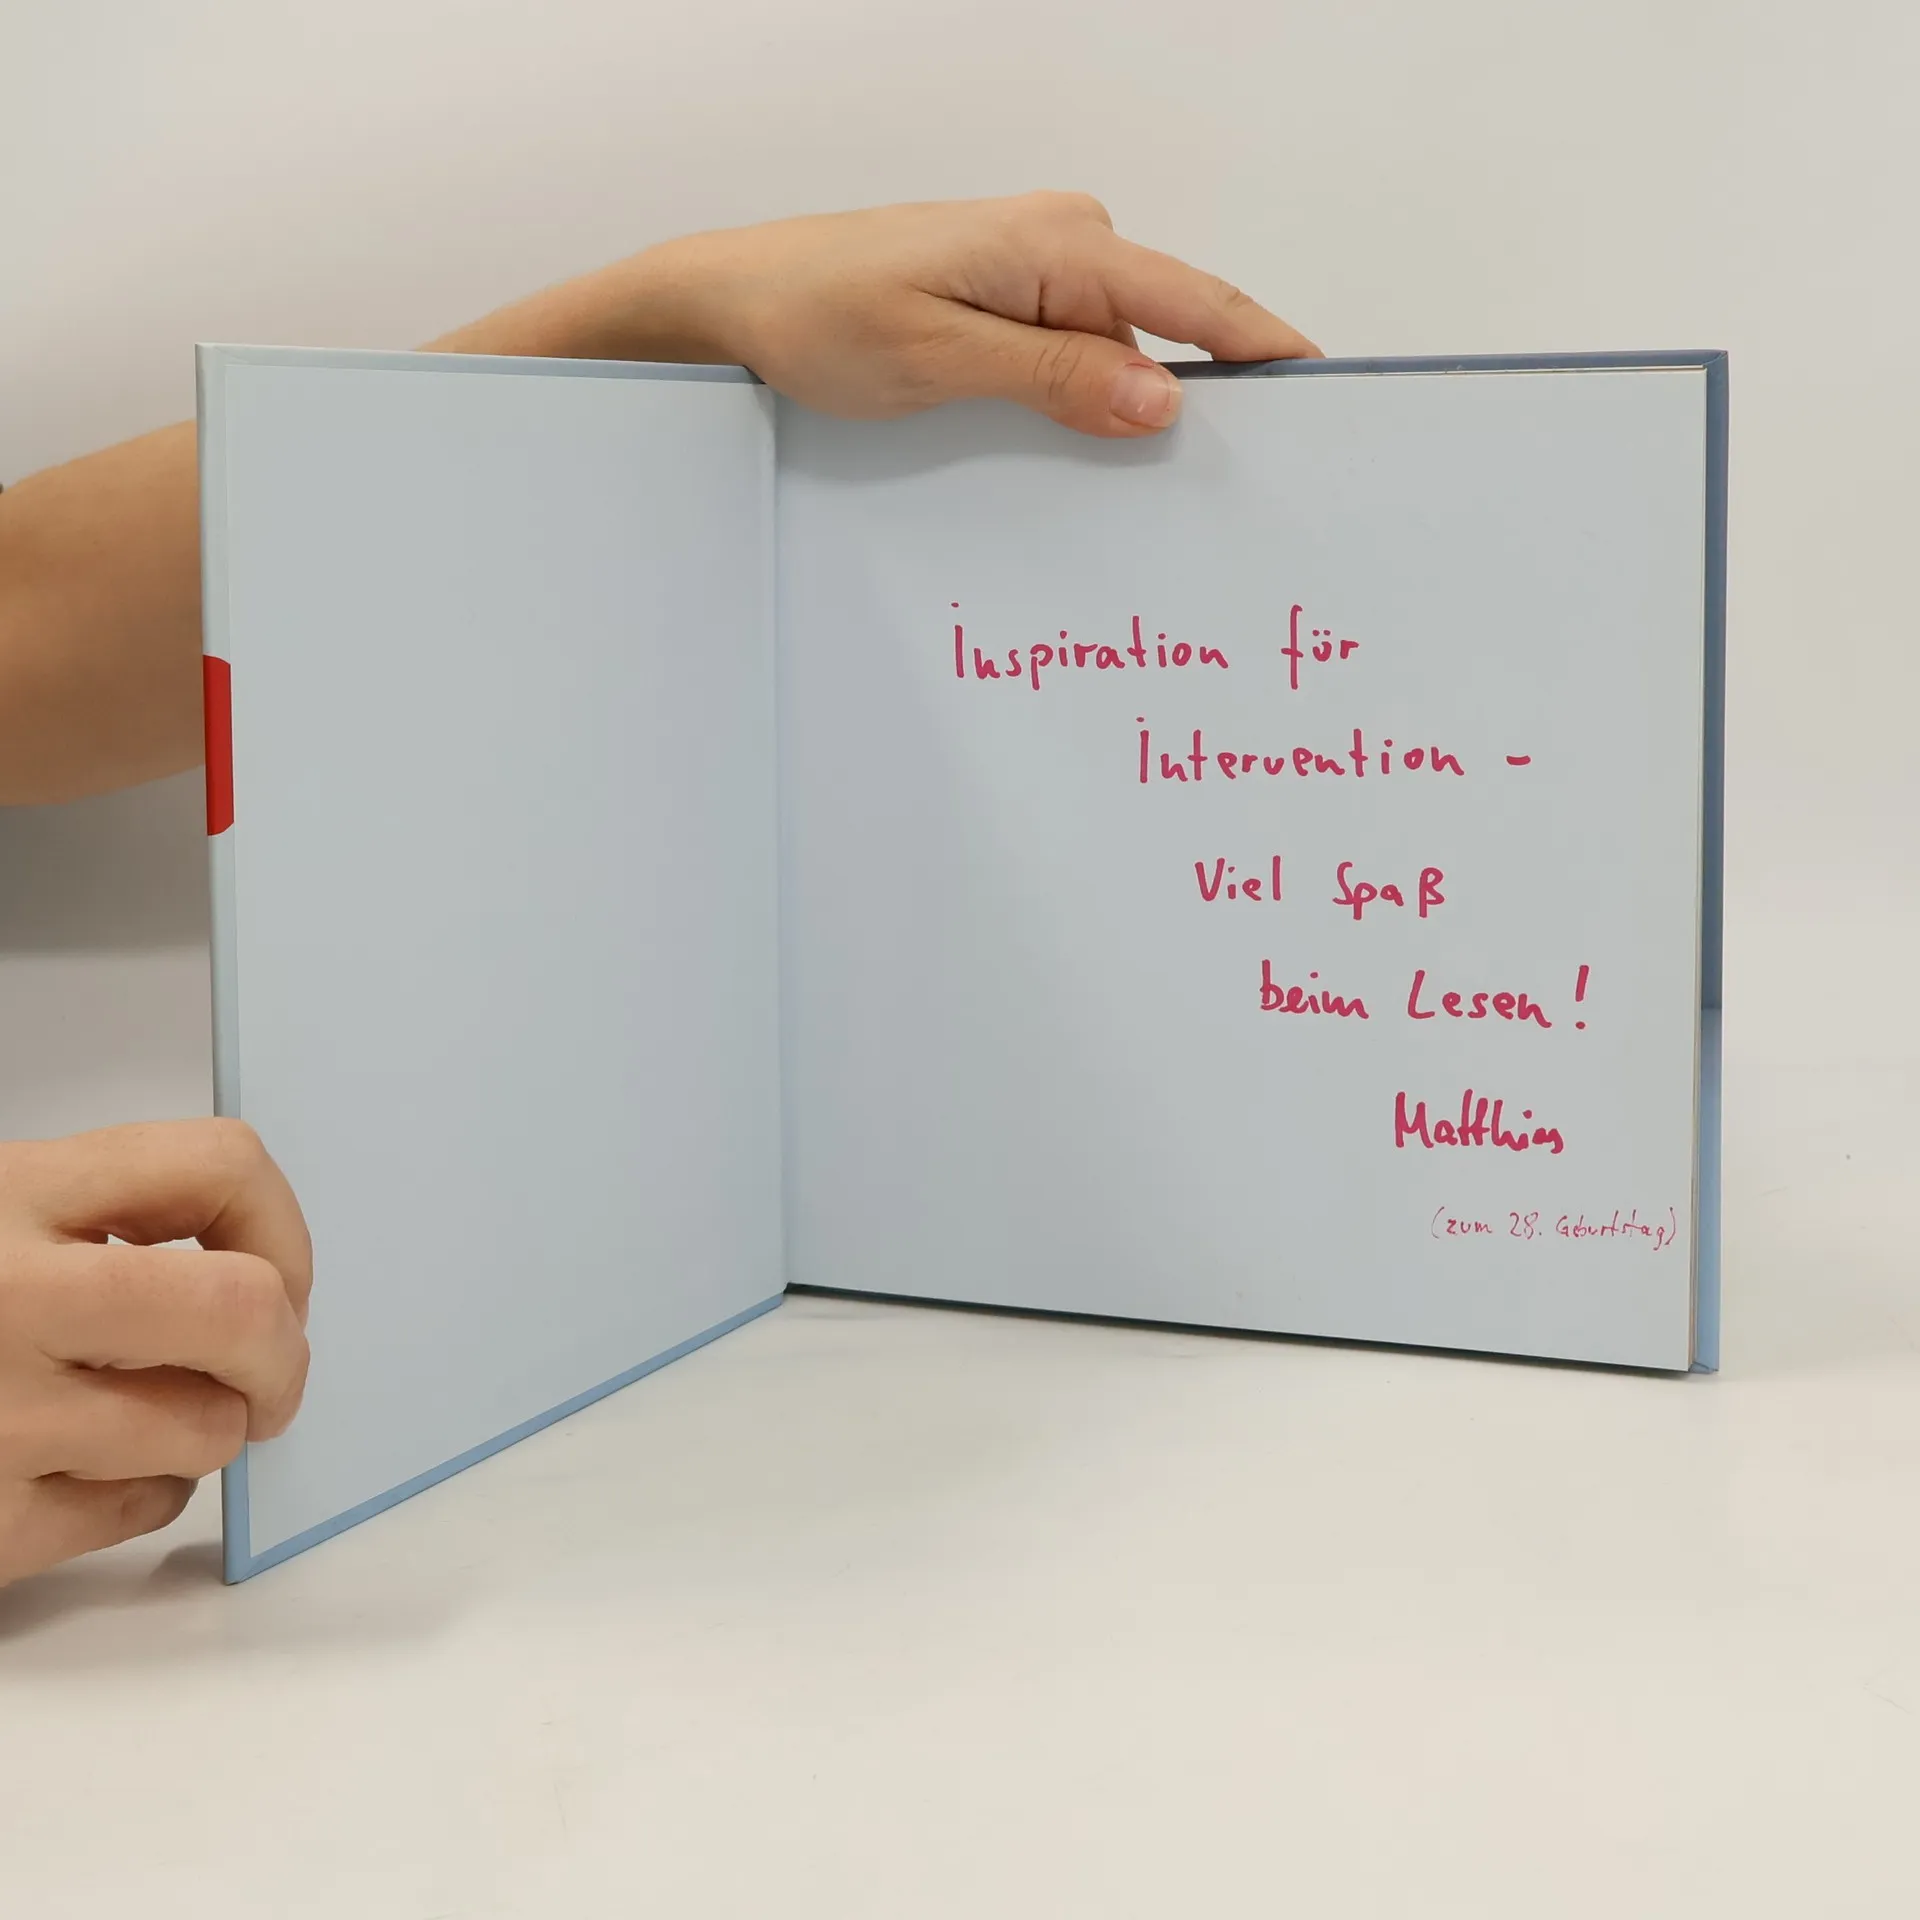 Inspiration für
Intervention -
Viel Spaß
beim Lesen!
Matthias
(zum 28. Geburtstag)